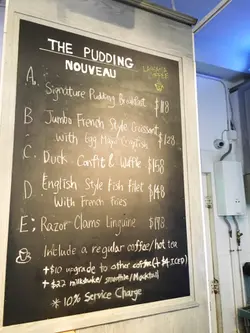 THE PUDDING
NOUVEAU
COFFEE
A. Signature Pudding Breakfast $118
B Jumbo French Style Croissant
with Egg Mayo Crayfish $128
C. Duck Confit & Waffle $158
D. English Style Fish Filet $148
With French Fries
E; Razor Clams Linguine $198
Include a regular coffee/hot tea
+$10 upgrade to other coffee (+$4 ICED)
+$22 milkshake/smoothie/Mocktail
* 10% Service Charge